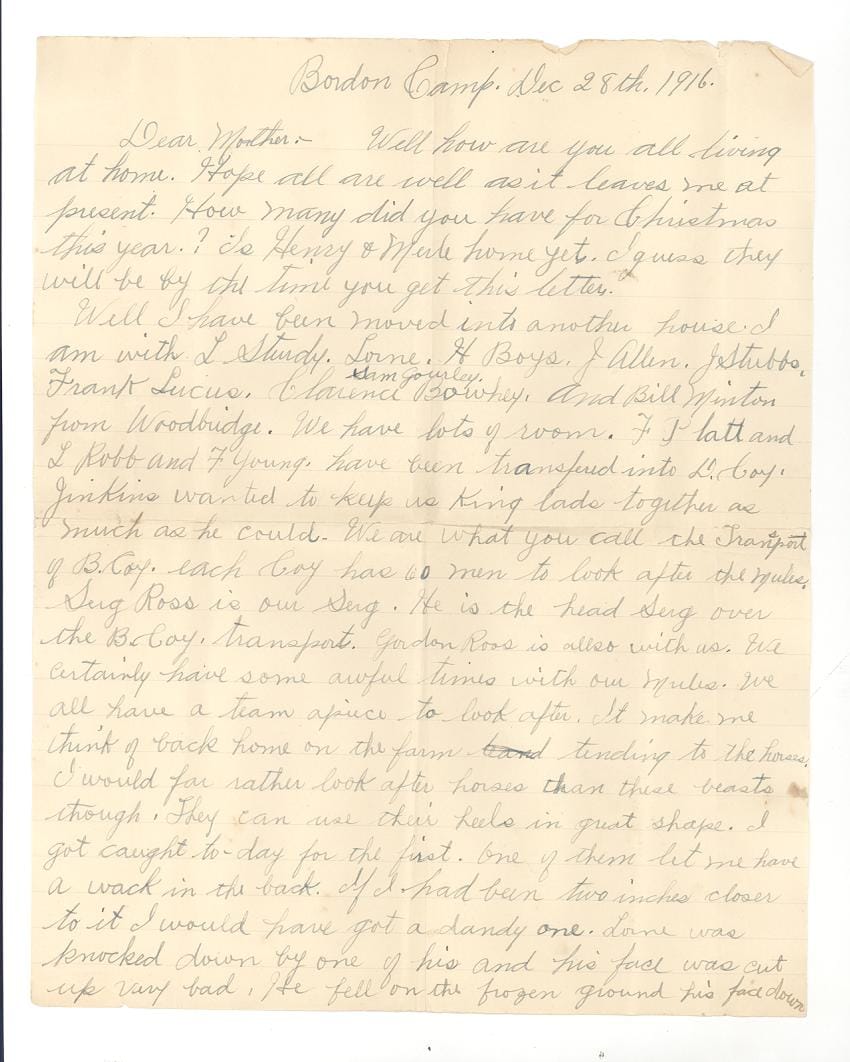 Bordon Camp. Dec 28th. 1916.
Dear Morther:- Well how are you all living
at home. Hope all are well as it leaves me at
present. How many did you have for Christmas
this year.? is Henry & Merle home yet. I guess they
will be by the time you get this letter.
Well I have been moved into another house. I
am with L Sturdy. Lorne. H Boys. J Allen. J Stubbs,
Sam Gourley.
Frank Lucus. Clarence Bowhey. and Bill Minton
from Woodbridge. We have lots of room. F Platt and
L Robb and F Young. have been transfered into D. Coy.
Jinkins wanted to keep us King lads together as
much as he could. We are what you call the Transport
of B. Coy. each Coy has 10 men to look after the mules.
Serg Ross is our Serg. He is the head Serg over
the B. Coy. transport. Gordon Ross is allso with us. We
certainly have some awful times with our mules. We
all have a team apiece to look after. It make me
think of back home on the farm tending to the horses.
I would far rather look after horses than these beasts
though. They can use their heels in great shape. I
got caught to-day for the first. One of them let me have
a wack in the back. If I had been two inches closer
to it I would have got a dandy one. Lorne was
knocked down by one of his and his face was cut
up very bad. He fell on the frozen ground his face down